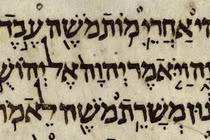 אַחֲרֵי מוֹת מֹשֶׁה עֶבֶד
יְהוָה וַיֹּאמֶר יְהוָה אֶל יְהוֹשֻׁ
נוּן מְשָׁרֵת מֹשֶׁה לֵאמֹ